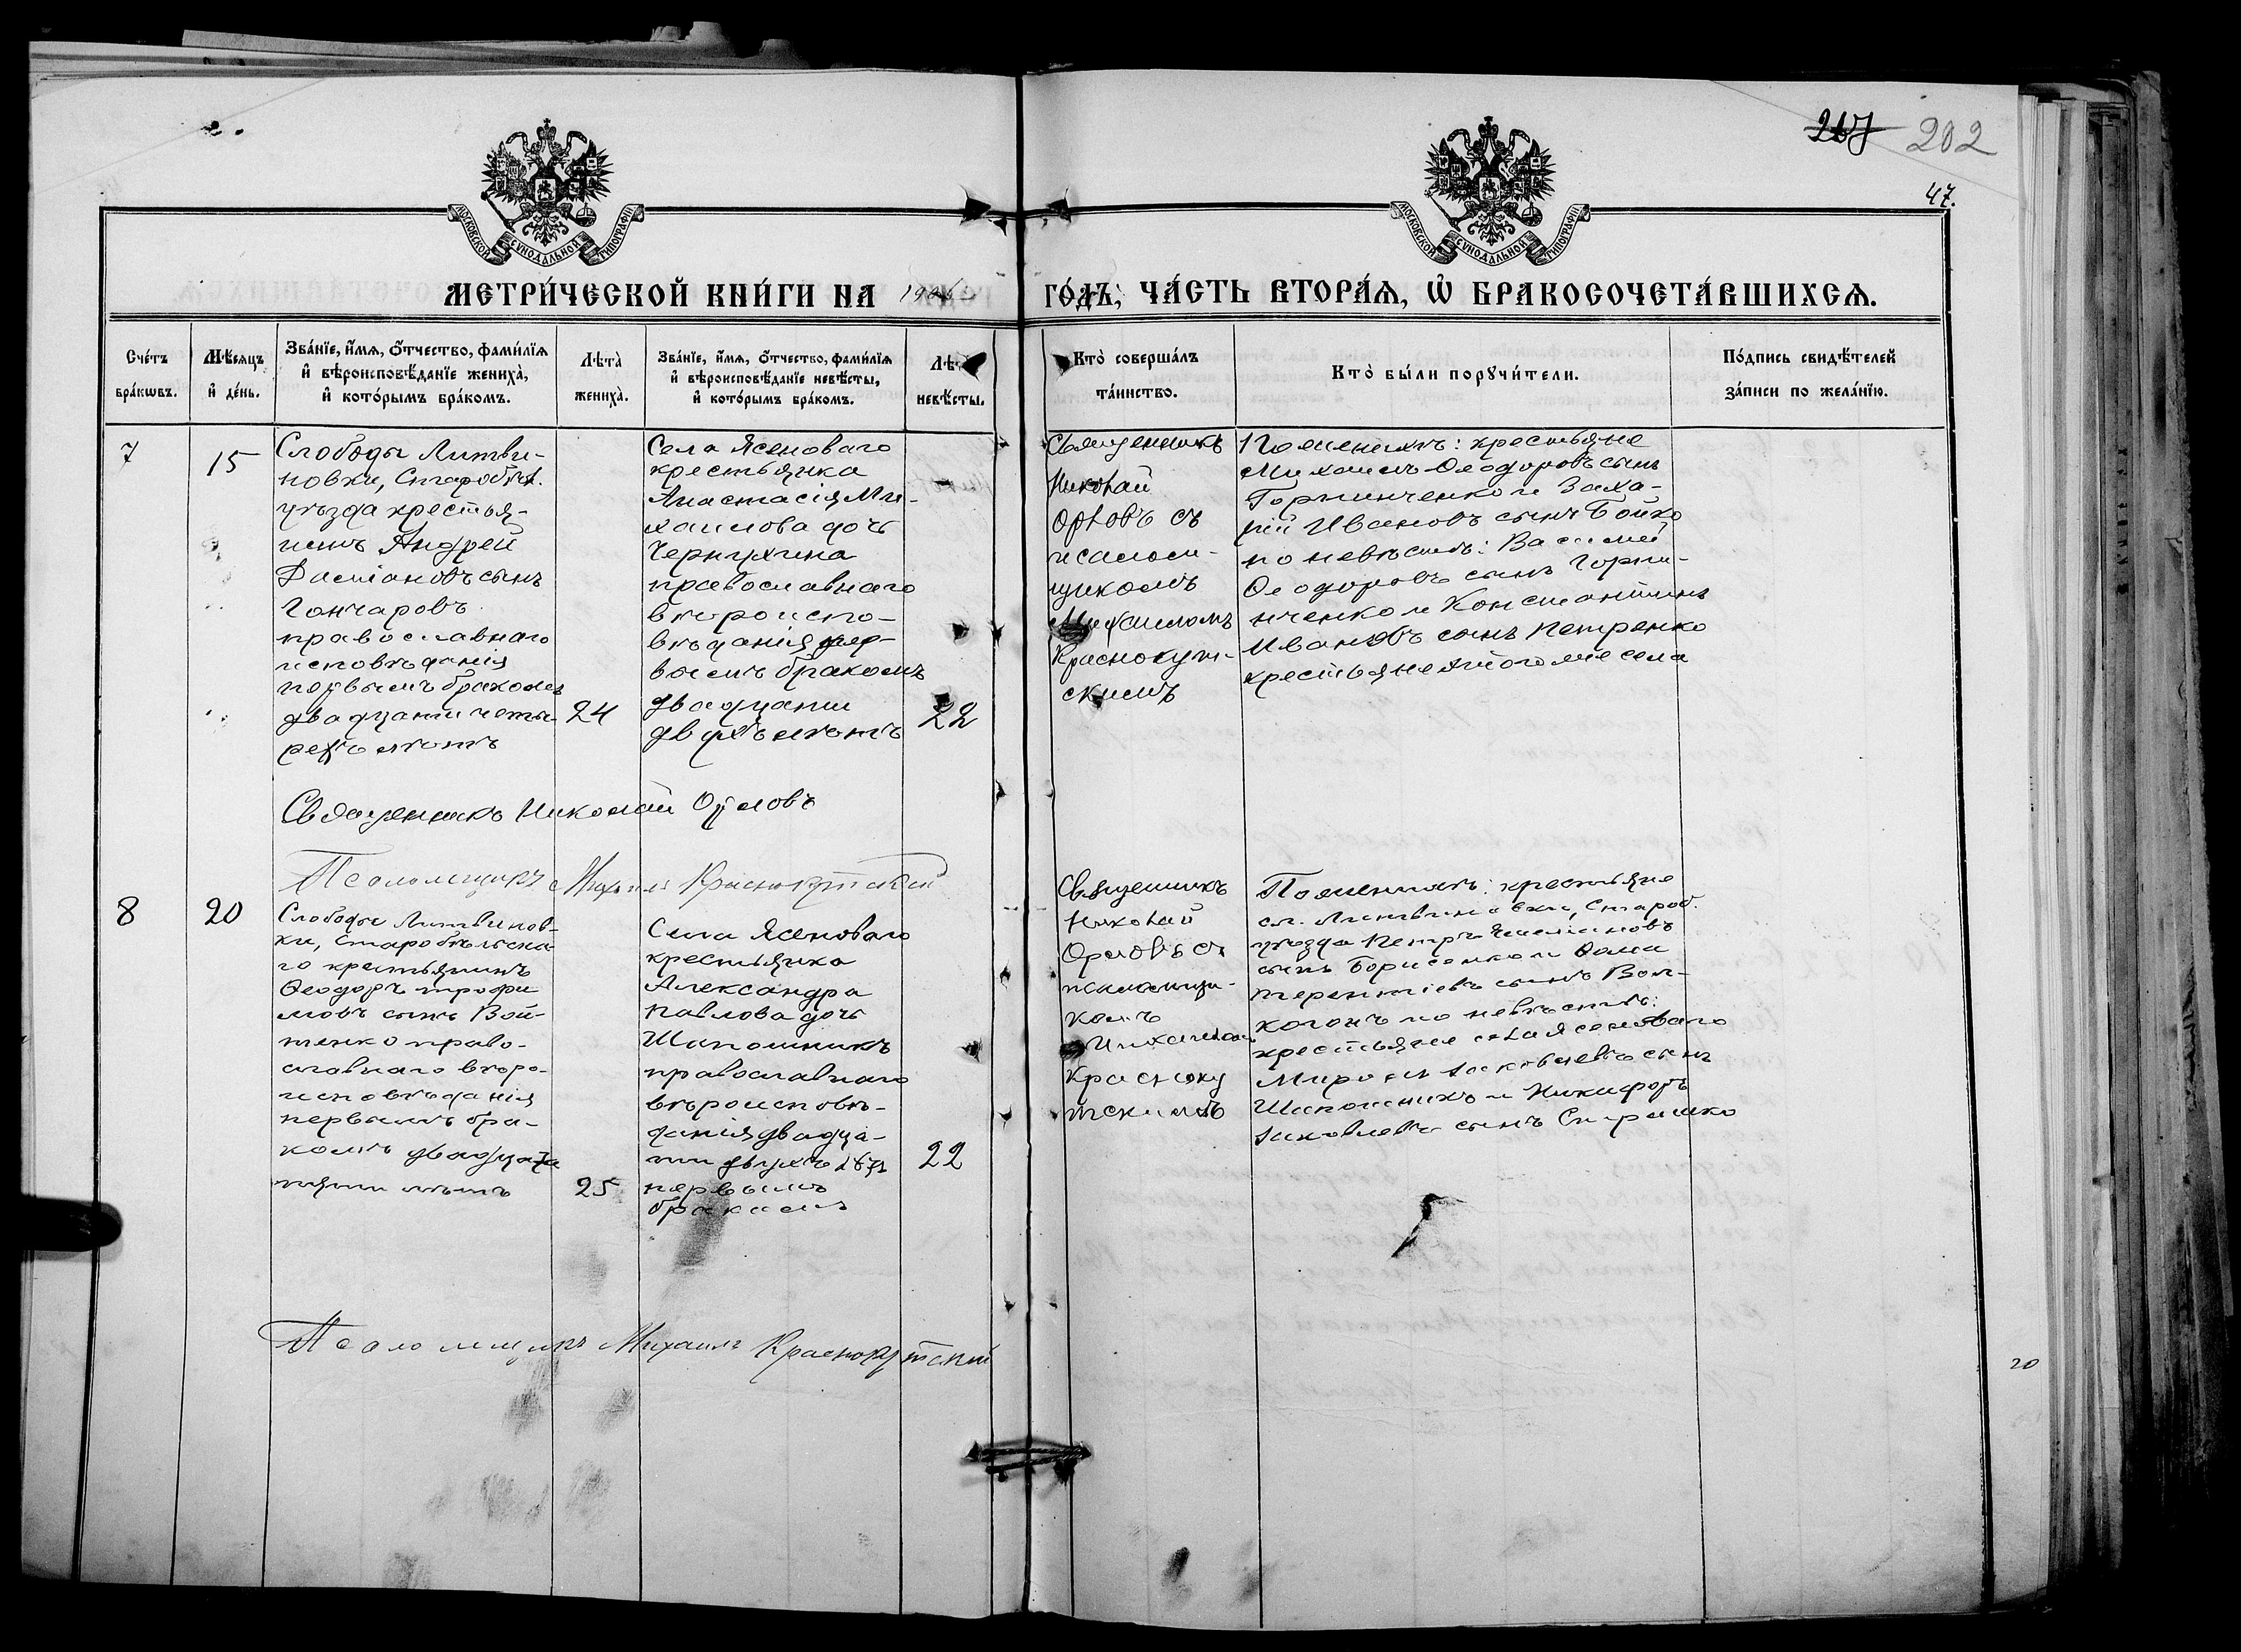 267 202
47.
МОСКОВСКОЙ СѴНОДАЛЬНОЙ ТИПОГРАФІИ
МОСКОВСКОЙ СѴНОДАЛЬНОЙ ТИПОГРАФІИ
МЕТРИ́ЧЕСКОЙ КНИ́ГИ НА
ГО́ДЪ, ЧА́СТЬ ВТОРА́Ѧ, Ѡ҆ БРАКОСОЧЕТА́ВШИХСѦ.
Сче́тъ бра́кѡвъ.
Мѣ́сяцъ и҆ де́нь.
Зва́нїе, и҆́мѧ, о҆́тчество, фами́лїѧ и҆ вѣроисповѣ́данїе жениха̀, и҆ кото́рымъ бра́комъ.
Лѣта̀ жениха̀.
Зва́нїе, и҆́мѧ, о҆́тчество, фами́лїѧ и҆ вѣроисповѣ́данїе невѣ́сты, и҆ кото́рымъ бра́комъ.
Лѣ невѣ́сты.
Кто̀ соверша́лъ та́инство.
Кто̀ бы́ли порꙋчи́тели.
По́дпись свидѣ́телей за́писи по жела́нїю.
7
15
Слободы Литви-
новки, Старобѣл.
уѣзда крестья-
нинъ Андрей
Даміановъ сынъ
Гончаровъ
православнаго
исповѣданія
первымъ бракомъ
двадцати четы-
рехъ лѣтъ
24
Села Ясеноваго
крестьянка
Анастасія Ми-
хаилова дочь
Чернухина
православнаго
вѣроиспо-
вѣданія пер-
вымъ бракомъ
двадцати
двухъ лѣтъ
22
Священникъ
Николай
Орловъ съ
псалом-
щикомъ
Михаиломъ
Краснокут-
скимъ
По женихѣ: крестьяне
Михаилъ Ѳеодоровъ сынъ
Горпинченко и Заха-
рій Ивановъ сынъ Бойко
по невѣстѣ: Василій
Ѳеодоровъ сынъ Горпи-
нченко и Константинъ
Ивановъ сынъ Петренко
крестьяне того же села
Священникъ Николай Орловъ
Псаломщикъ Михаилъ Краснокутскій
8
20
Слободы Литвинов-
ки, Старобѣльска-
го крестьянинъ
Ѳеодоръ Трофи
мовъ сынъ Вой-
тенко право-
славнаго вѣро-
исповѣданія
первымъ бра-
комъ двадцати
пяти лѣтъ
25
Села Ясеноваго
крестьянка
Александра
Павлова дочь
Шапошникъ
православнаго
вѣроисповѣ-
данія двадца-
ти двухъ лѣтъ
первымъ
бракомъ
22
Священникъ
Николай
Орловъ съ
псаломщи-
комъ
Михаиломъ
Красноку
тскимъ
По женихѣ: крестьяне
сл. Литвиновки, Староб.
уѣзда Петръ
сынъ Борисенко и Ѳома
Терентіевъ сынъ Вол-
когонъ по невѣстѣ:
крестьяне села Ясеноваго
Миронъ Яковлевъ сынъ
Шапошникъ и Никифоръ
Яковлевъ сынъ
Псаломщикъ Михаилъ Краснокутскій
20